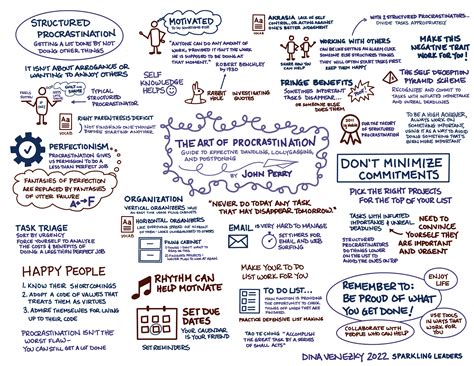 STRUCTURED
PROCRASTINATION
GETTING A LOT DONE BY NOT
DOING OTHER THINGS
IT ISN'T ABOUT ARROGANCE OR
WANTING TO ANNOY OTHERS
TYPICAL
STRUCTURED
PROCRASTINATOR
MOTIVATED
"ANYONE CAN DO ANY AMOUNT OF
WORK, PROVIDED IT ISN'T THE WORK
HE IS SUPPOSED TO BE DOING AT
THAT MOMENT."
ROBERT BENCHLEY
1930
SELF
KNOWLEDGE
HELPS
RABBIT
HOLE
INVESTIGATING
QUOTES
AKRASIA
LACK OF SELF
CONTROL, OR ACTING AGAINST
ONE'S BETTER JUDGEMENT
VOCAB
WORKING WITH OTHERS
OTHER MAY START THINGS FAST
KEEP THEM HAPPY
FRINGE BENEFITS
SOMETIMES INTENDANT
TASKS DISAPPEAR
OR SOMEONE ELSE
DOES THEM
WITH 2 STRUCTURED PROCRASTINATORS
DIVIDE TASKS APPROPRIATELY
MAKE THIS
NEGATIVE TRAIT
WORK FOR YOU!
THE SELF DECEPTION
PYRAMID SCHEME
RECOGNIZE AND COMMIT TO
TASKS WITH INFLATED IMPORTANCE
AND UNREAL DEADLINES
FOR THE THEORY
OF STRUCTURED
PROCRASTINATION
TO BE A HIGH ACHIEVER,
ALWAYS WORK ON
SOMETHING IMPORTANT,
USING IT AS A WAY TO AVOID
DOING SOMETHING THAT'S
EVEN MORE IMPORTANT
VOCAB
RIGHT PARENTHESIS DEFICIT
NOT FINISHING ONE THING
BEFORE STARTING ANOTHER
PERFECTIONISM
PROCRASTINATION GIVES
US PERMISSION TO DO A
LESS THAN PERFECT JOB
FANTASIES OF PERFECTION
ARE REPLACED BY FANTASIES
OF UTTER FAILURE
A+ F
THE ART OF PROCRASTINATION
GUIDE TO EFFECTIVE DAWDLING, LOLLYGAGGING,
AND POSTPONING
BY
JOHN PERRY
DON'T MINIMIZE
COMMITMENTS
PICK THE RIGHT PROJECTS
FOR THE TOP OF YOUR LIST
ORGANIZATION
VERTICAL ORGANIZERS
VOCAB
HORIZONTAL ORGANIZERS
FILING CABINET
"NEVER DO TODAY ANY TASK
THAT MAY DISAPPEAR TOMORROW."
EMAIL
IS VERY HARD TO MANAGE
SET TIMERS FOR
EMAIL AND WEB
SURFING
TASKS WITH INFLATED
IMPORTANCE & UNREAL
DEADLINES
STRUCTURED
PROCRASTINATORS
DO THINGS LOWER
ON THE LIST TO
AVOID THE ONES ON TOP
NEED TO
CONVINCE
YOURSELF THEY
ARE IMPORTANT
AND URGENT
TASK TRIAGE
SORT BY URGENCY
FORCE YOURSELF TO ANALYZE
THE COSTS & BENEFITS OF
DOING A LESS THAN PERFECT JOB
HAPPY PEOPLE
1. KNOW THEIR SHORTCOMINGS
2. ADOPT A CODE OF VALUES THAT
TREATS THEM AS VIRTUES
3. ADMIRE THEMSELVES FOR LIVING
UP TO THEIR CODE
PROCRASTINATION ISN'T THE
WORST FLAW—
YOU CAN STILL GET A LOT DONE
RHYTHM CAN
HELP MOTIVATE
SET DUE
DATES
YOUR CALENDAR
IS YOUR FRIEND
SET REMINDERS
MAKE YOUR TO DO
LIST WORK FOR YOU
TO DO LIST...
PRACTICE DEFENSIVE LIST MAKING
TAO TE CHING "ACCOMPLISH
THE GREAT TASK BY A
SERIES OF SMALL ACTS"
ENJOY
LIFE
REMEMBER TO:
BE PROUD OF WHAT
YOU GET DONE!
COLLABORATE WITH PEOPLE
WHO CAN HELP YOU
USE TOOLS
IN WAYS THAT
WORK FOR
YOU
DINA VENEZKY 2022 SPARKLING LEADERS